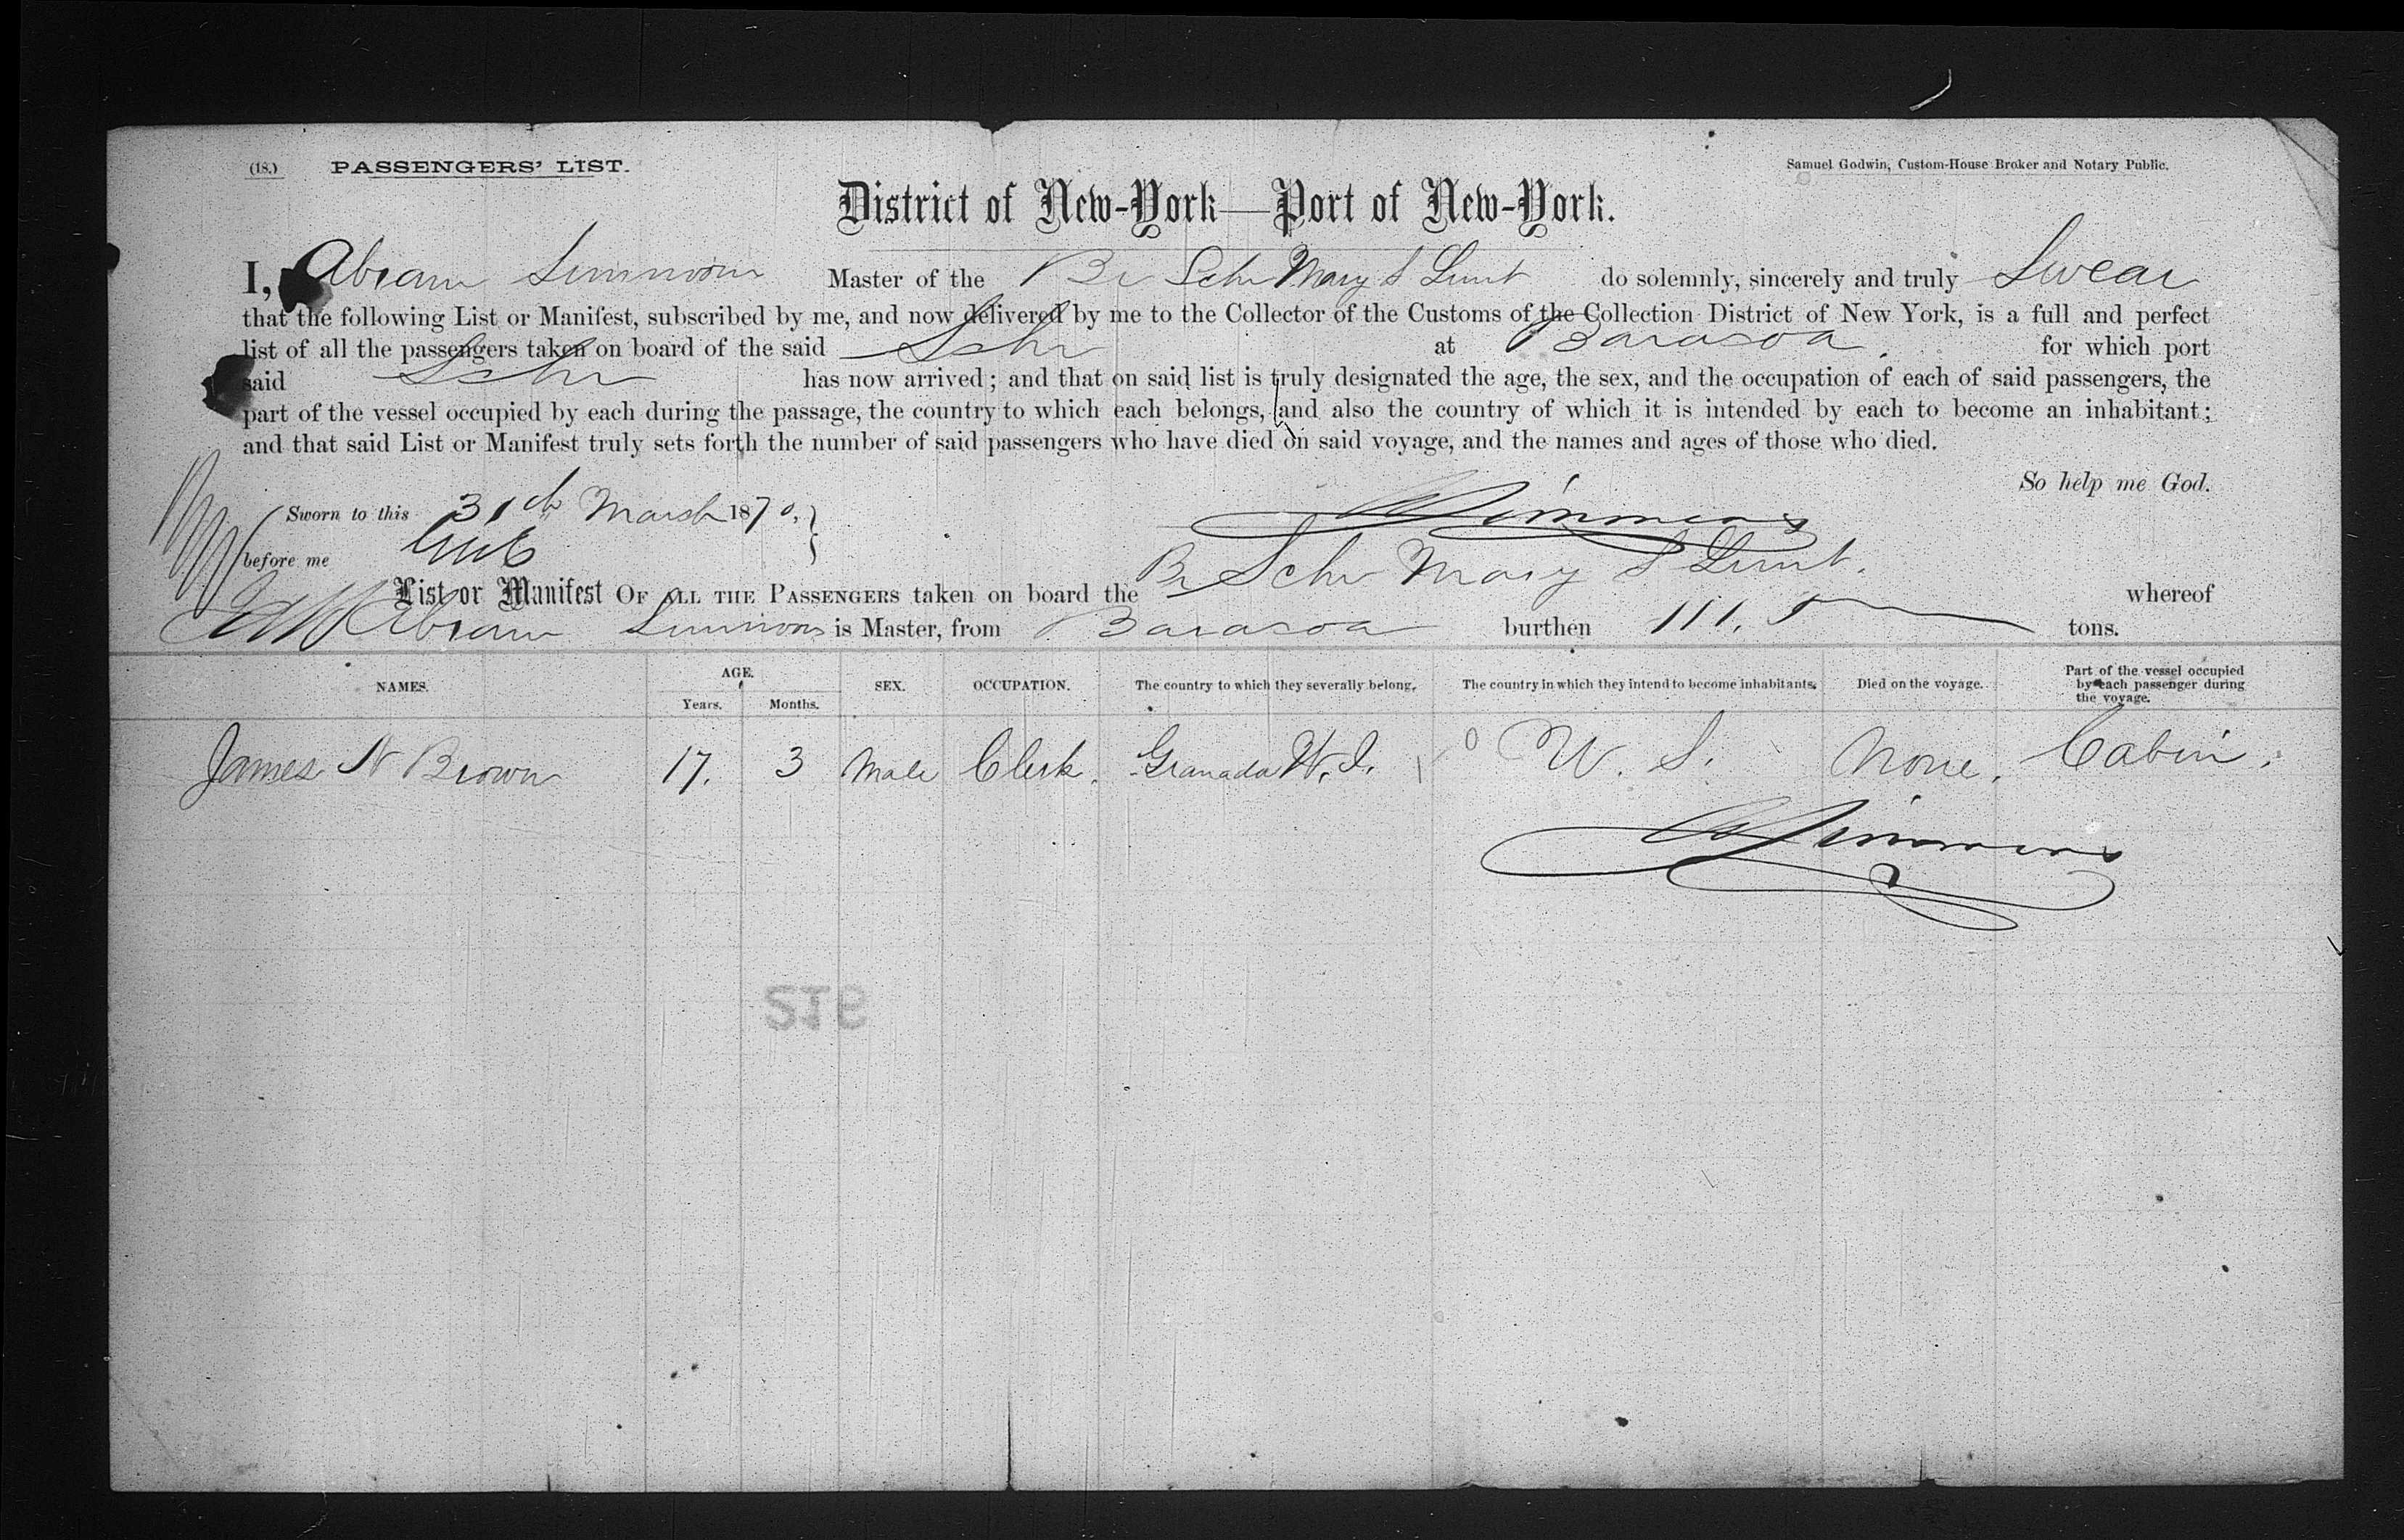 (18.) PASSENGERS' LIST. Samuel Godwin, Custom-House Broker and Notary Public.
District of New-York—Port of New-York.
I, Abram Simmons Master of the Br Schr Mary S Lunt do solemnly, sincerely and truly Swear
that the following List or Manifest, subscribed by me, and now delivered by me to the Collector of the Customs of the Collection District of New York, is a full and perfect
list of all the passengers taken on board of the said Schr at Baracoa. for which port
said Schr has now arrived; and that on said list is truly designated the age, the sex, and the occupation of each of said passengers, the
part of the vessel occupied by each during the passage, the country to which each belongs, and also the country of which it is intended by each to become an inhabitant;
and that said List or Manifest truly sets forth the number of said passengers who have died on said voyage, and the names and ages of those who died.
So help me God.
Sworn to this 31th March 1870. A Simmons
before me
List or Manifest OF ALL THE PASSENGERS taken on board the Br Schr Mary S Lunt. whereof
Abram Simmons is Master, from Baracoa burthen 111. tons.
NAMES. AGE. Years. Months. SEX. OCCUPATION. The country to which they severally belong. The country in which they intend to become inhabitants. Died on the voyage. Part of the vessel occupied by each passenger during the voyage.
James N Brown 17. 3 Male Clerk. Granada W. I. 0 U. S. None. Cabin.
A Simmons